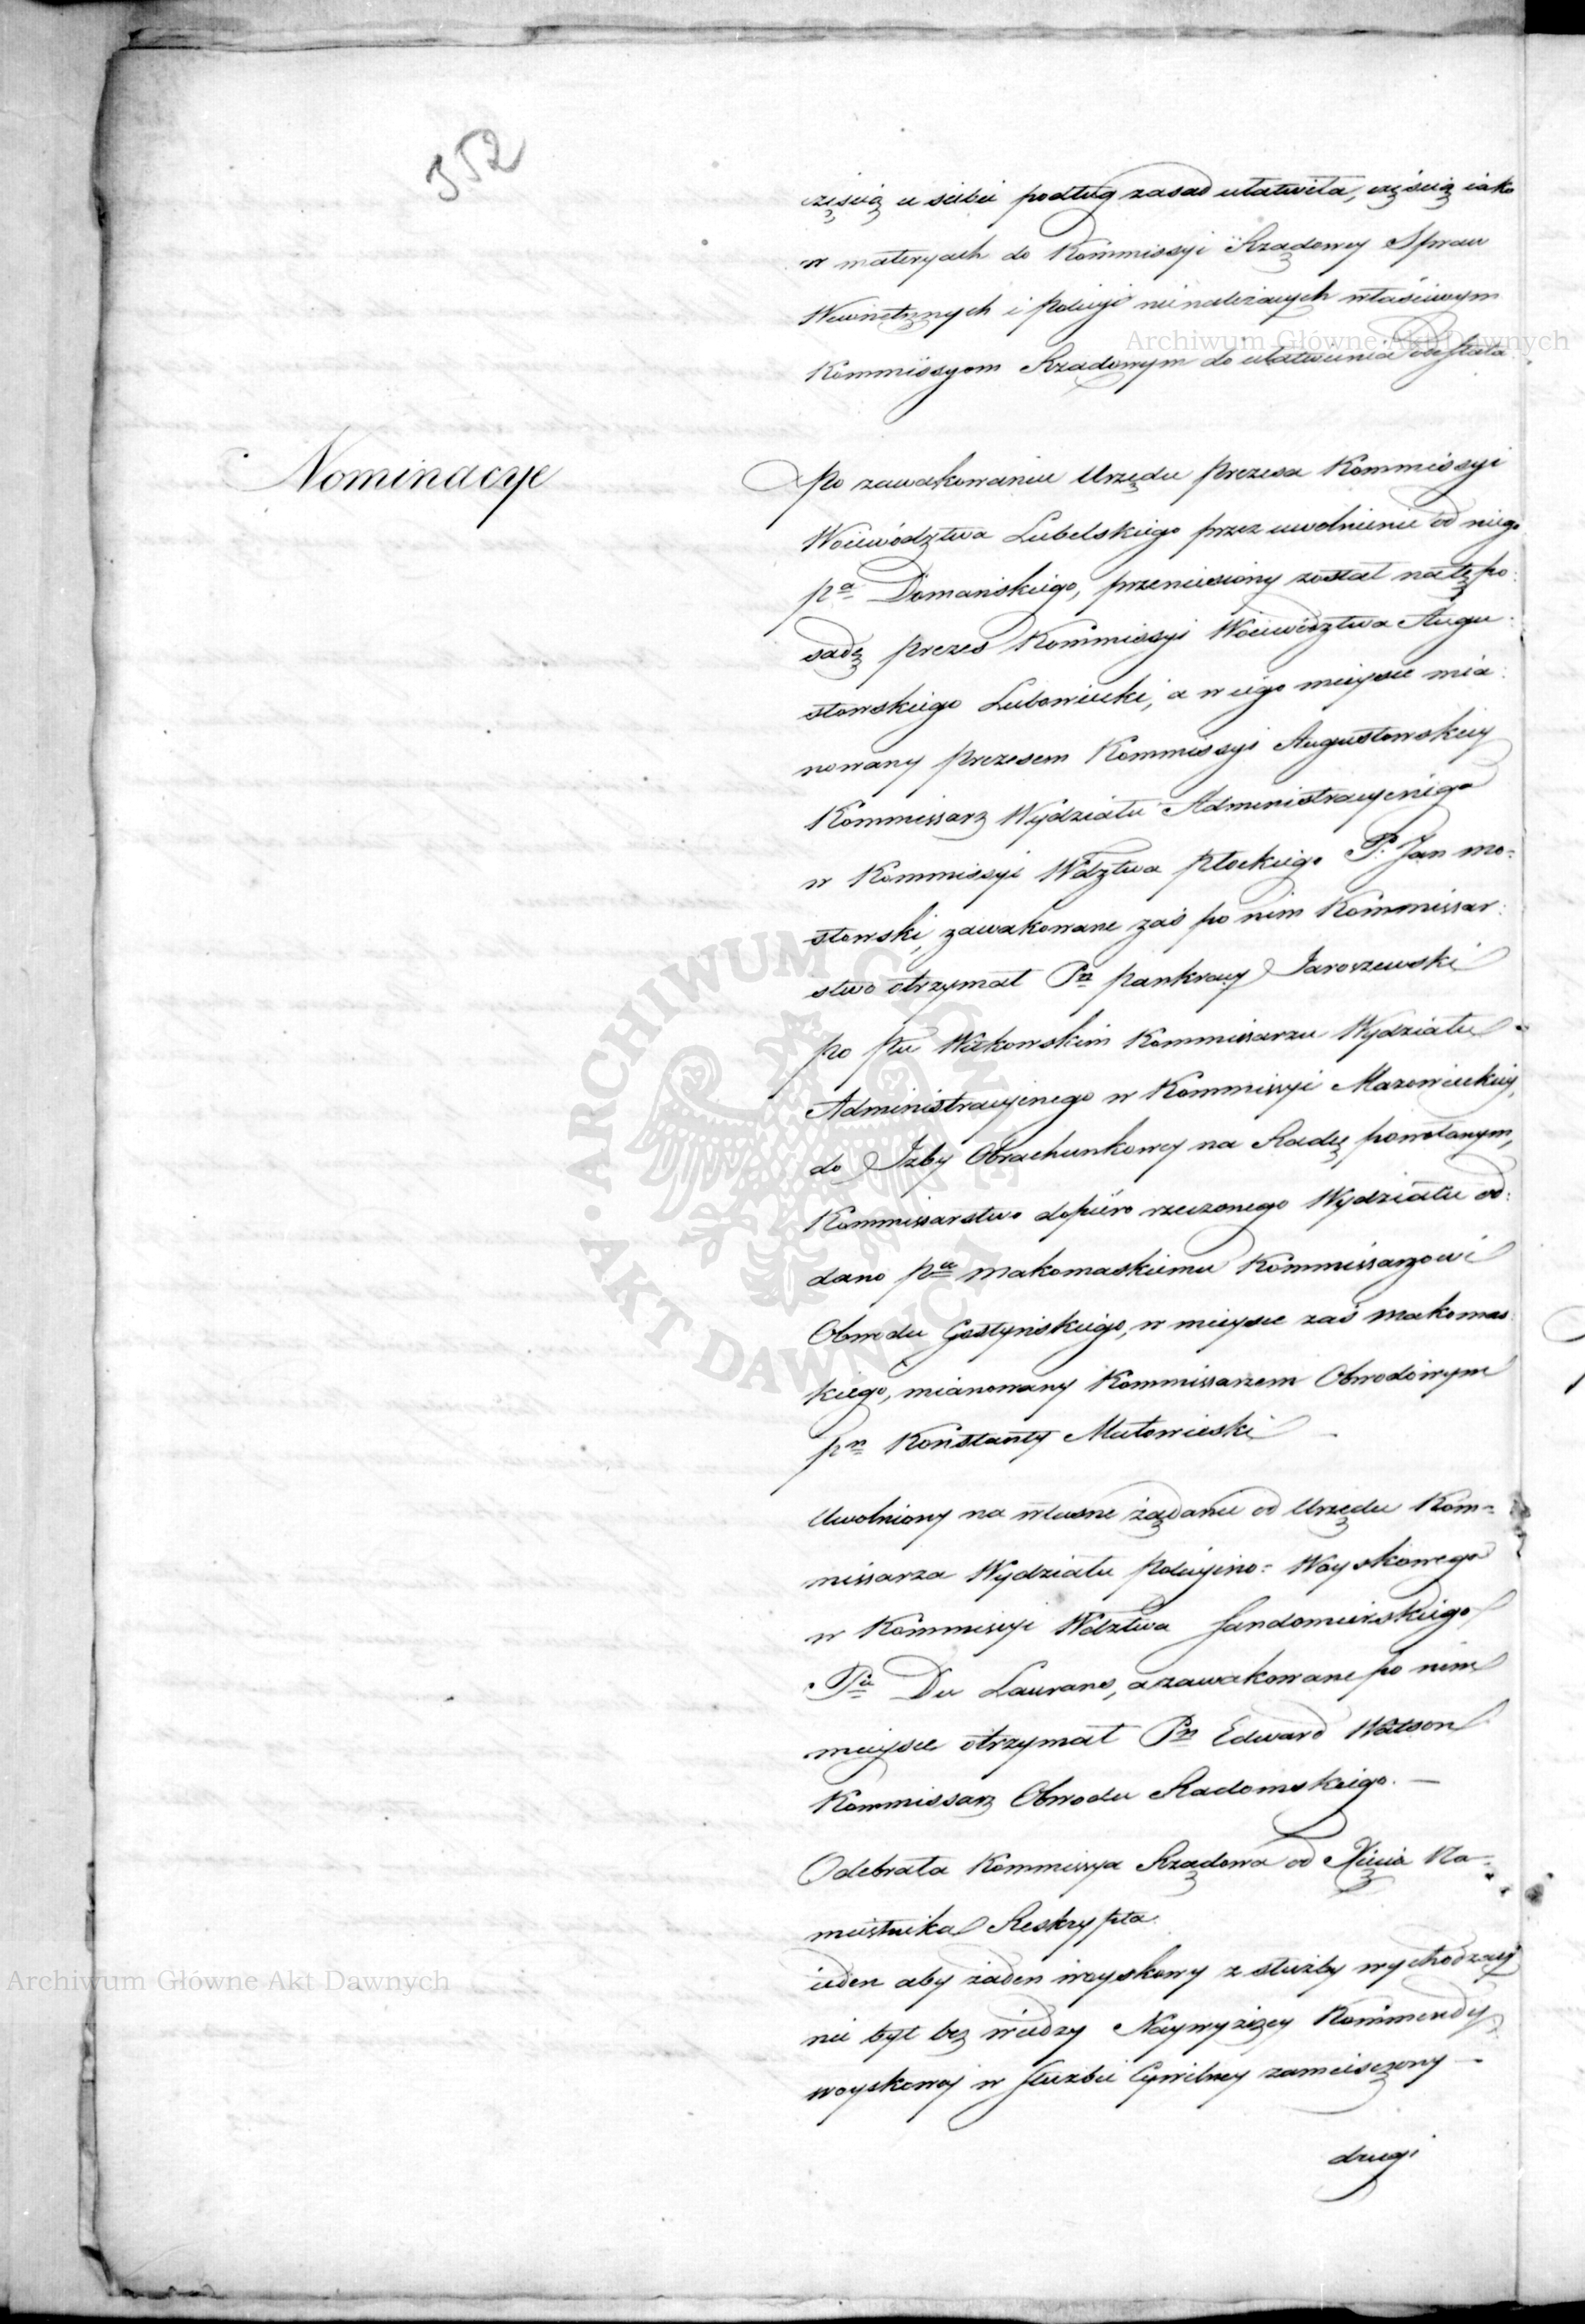 352
częścią u siebie podług zasad ułatwiła, częścią iako
w materyach do Kommissyi Rządowey Spraw
Wewnętrznych i Policyi nienależących właściwym
Kommissyom Rządowym do ułatwienia odesłała.
Nominacye
Po zawakowaniu Urzędu Prezesa Kommissyi
Woiewództwa Lubelskiego przez uwolnienie od niego
Pa Domańskiego, przeniesiony został na tę po:
sadę Prezes Kommissyi Woiewództwa Augu:
stowskiego Lubowiecki, a w iego mieysce mia:
nowany Prezesem Kommissyi Augustowskiey
Kommissarz Wydziału Administracyinego
w Kommissyi Wdztwa Płockiego P. Jan Mo=
stowski, zawakowane zaś po nim Kommissar:
stwo otrzymał Pn Pankracy Jaroszewski
Po Pu Witkowskim Kommissarzu Wydziału
Administracyinego w Kommissyi Mazowieckiey,
do Izby Obrachunkowey na Radcę powołanym,
Kommissarstwo dopiéro rzeczonego Wydziału od:
dano Pu Makomaskiemu Kommissarzowi
Obwodu Gostyńskiego, w mieysce zaś Makomas:
kiego, mianowany Kommissarzem Obwodowym
Pn Konstanty Małowieski
Uwolniony na własne żądanie od Urzędu Kom=
missarza Wydziału Policyino=Woyskowego
w Kommissyi Wdztwa Sandomierskiego
Pn Du Laurans, a zawakowane po nim
mieysce otrzymał Pn Edward Watson
Kommissarz Obwodu Radomskiego. —
Odebrała Kommissya Rządowa od Xięcia Na=
miestnika Reskrypta.
ieden aby żaden woyskowy z służby wychodzący
nie był bez wiedzy Naywyższey Kommendy
woyskowey w służbie Cywilney zamieszczony —
drugi
Archiwum Główne Akt Dawnych
Archiwum Główne Akt Dawnych
ARCHIWUM GŁÓWNE · AKT DAWNYCH ·